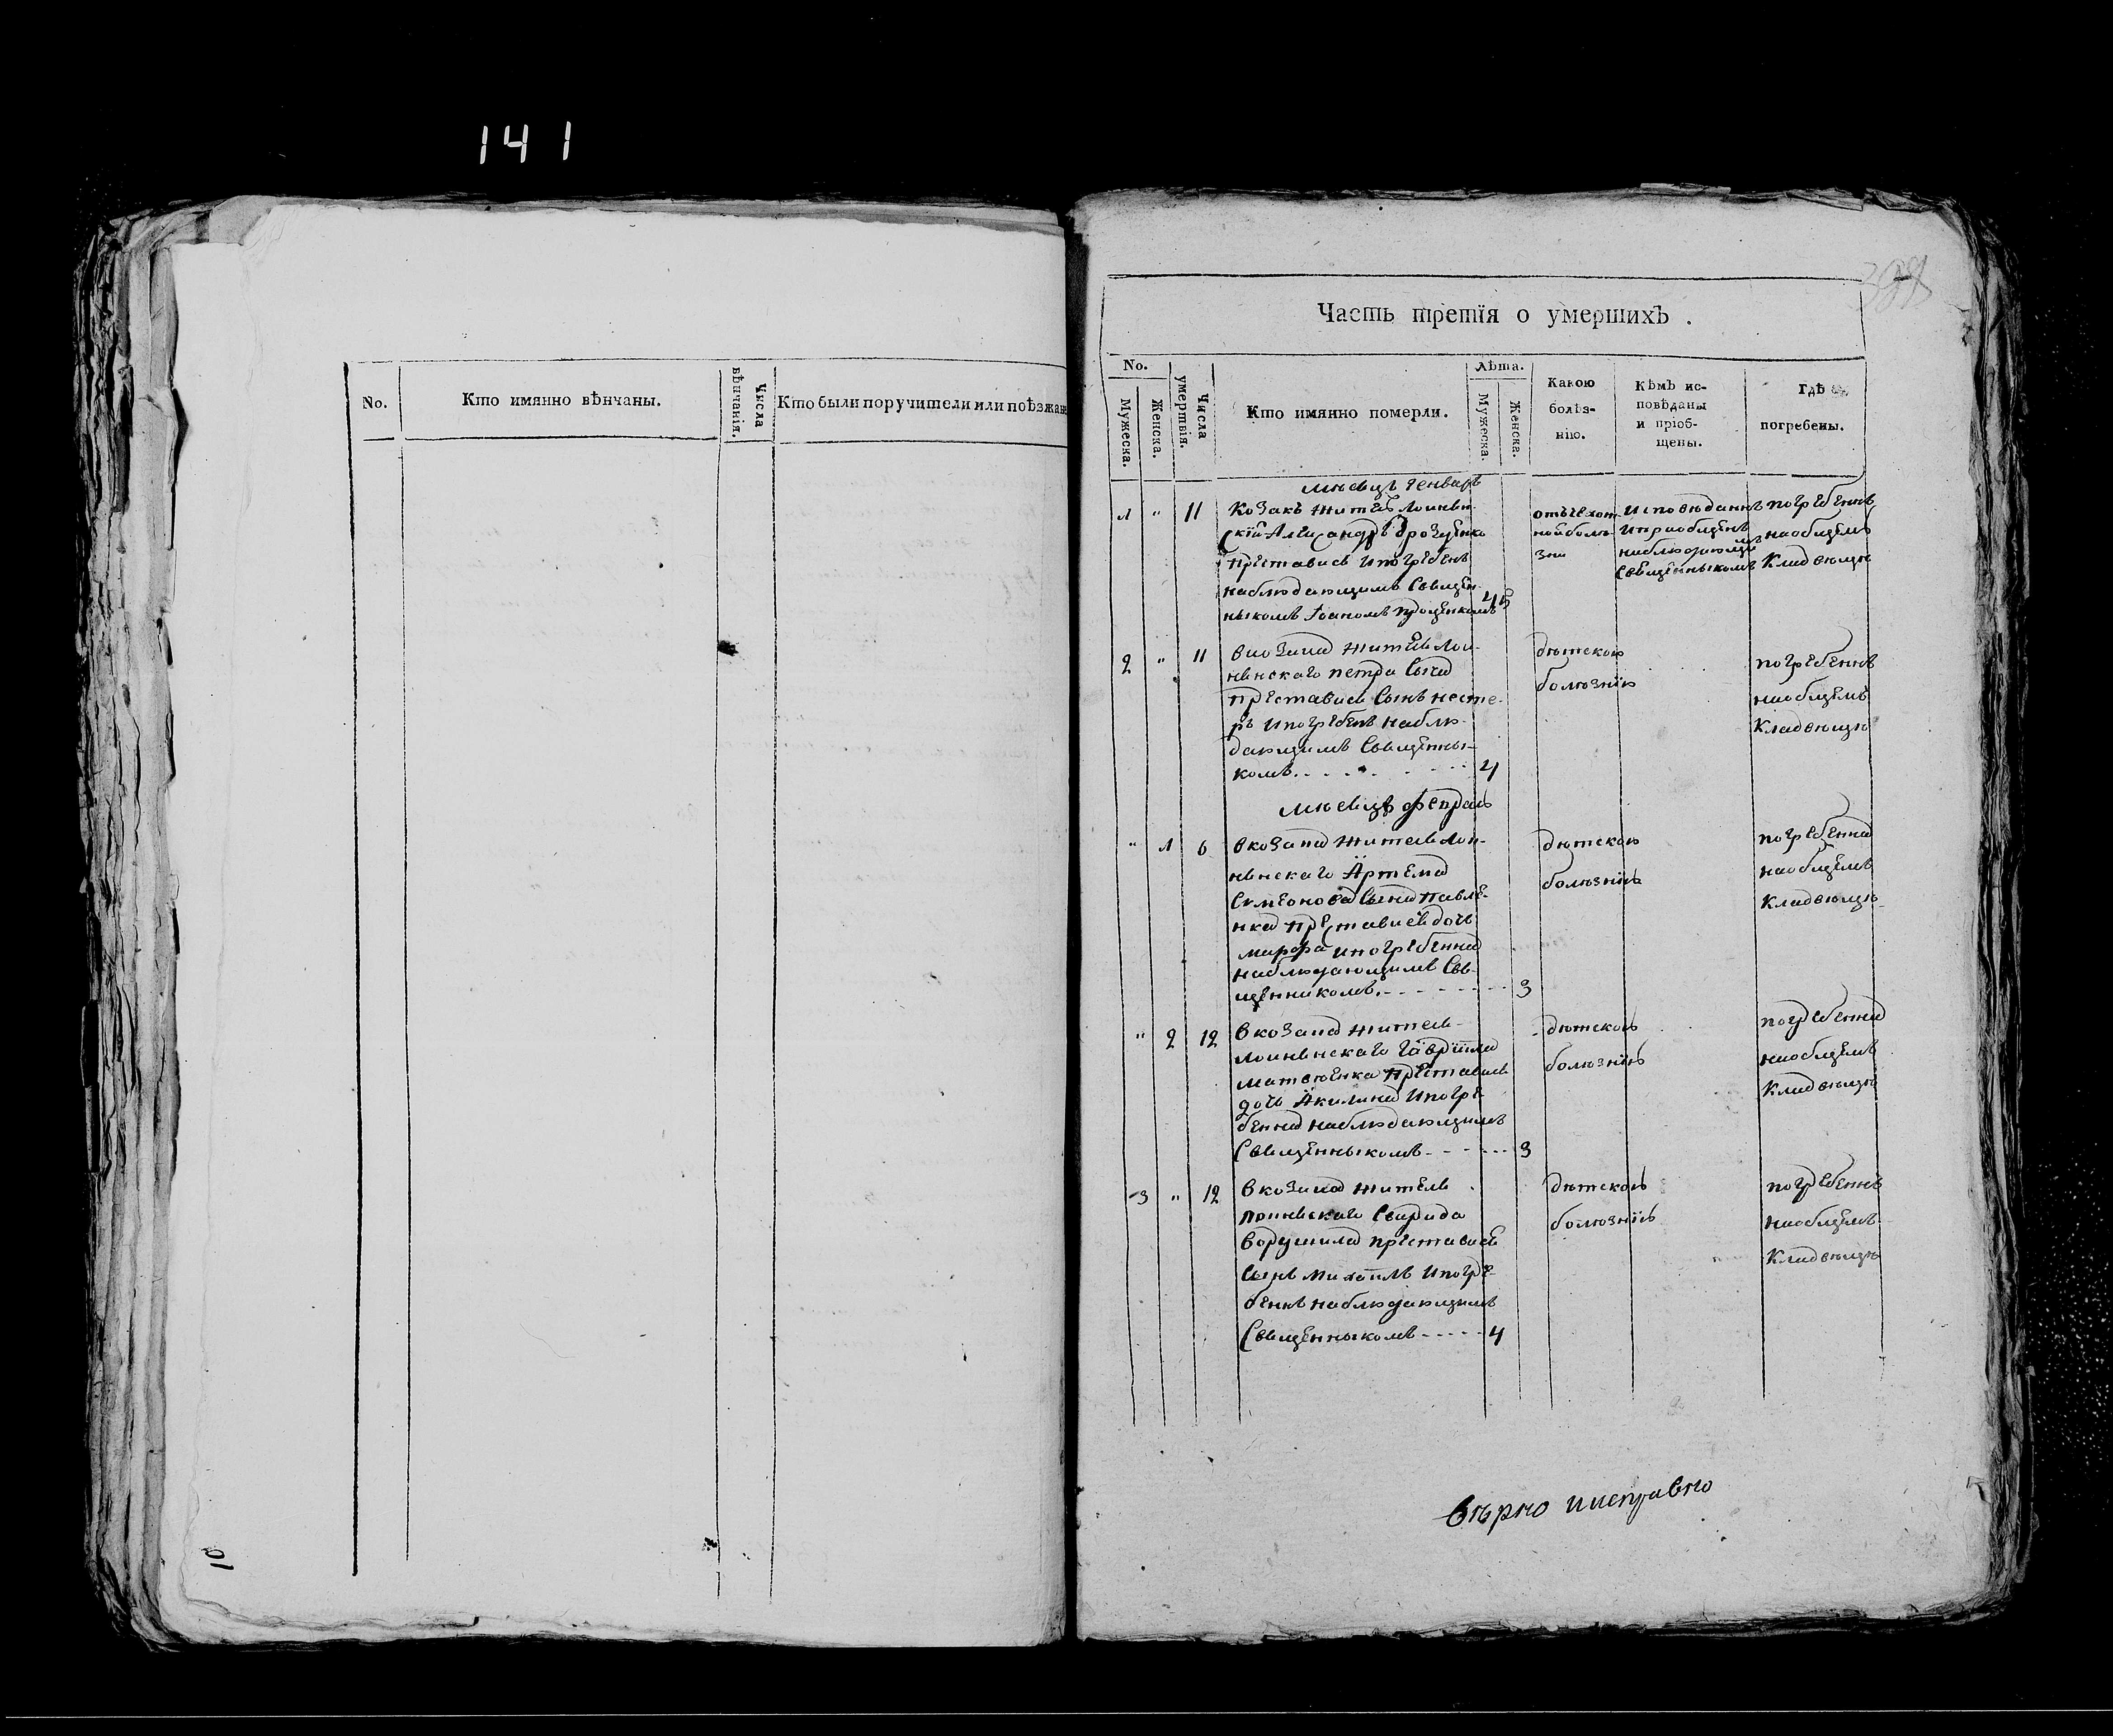 141
No.
Кто имянно вѣнчаны.
Числа вѣнчанія.
Кто были поручители или поѣзжане
10
Часть третїя о умершихъ .
No.
Мужеска.
Женска.
Числа умертвія.
Кто имянно померли.
Лѣта.
Мужеска.
Женска.
Какою болѣз-
нію.
Кѣмъ ис-
повѣданы
и пріоб-
щены.
Гдѣ
погребены.
мѣсяцъ генварь
1 " 11 Козакъ житель лоинвн-
скій
преставись и погребенъ
наблюдающимъ Священ-
ныкомъ Іоаномъ Проценкомъ 45
зни
исповѣданнъ
и приобщенъ
наблюдающимъ
Священныкомъ
погребеннъ
на общемъ
Кладвѣщѣ
2 " 11 в козака жителя лои-
нвнскаго петра
преставись Сынъ несте-
ръ и погребенъ наблю-
дающимъ Священны-
комъ. 4
дѣтскою
болѣзнію
погребеннъ
на общемъ
Кладвѣщѣ
мѣсяцъ февраль
" 1 6 в козака жителя лои-
нвнскаго Артема
Симеонова Сына Павле-
нка преставись дочь
марфа и погребенна
наблюдающимъ Свя-
щенникомъ. 3
дѣтскою
болѣзнію
погребенна
на общемъ
Кладвѣщѣ
" 2 12 в козака жителя
лоинвнскаго Гавріила
матвѣенка преставись
дочь Акилина и погре-
бенна наблюдающимъ
Священныкомъ 3
дѣтскою
болѣзнію
погребенна
на общемъ
Кладвѣщѣ
3 " 12 в козака жителя
Свирида
ворушила преставись
Сынъ михаилъ и погре-
бенъ наблюдающимъ
Священныкомъ 4
дѣтскою
болѣзнію
погребеннъ
на общемъ
Кладвѣщѣ
вѣрно и исправно